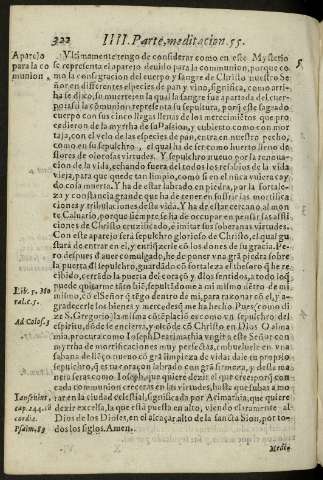 322 IIII. Parte, meditacion. 55.
Aparejo
para la co
munion.
Vltimamente tengo de considerar como en este Mysterio
se representa el aparejo deuido para la communion, porque co-
mo la consagracion del cuerpo y sangre de Christo nuestro Se-
ñor en differentes especies de pan y vino, significa, como arri-
ba se dixo, su muerte, en la qual la sangre fue apartada del cuer-
po: assi la comunion representa su sepultura, porque este sagrado
cuerpo con sus cinco llagas llenas de los merecimiẽtos que pro
cedieron de la myrrha de su Passion, y cubierto como con mor
taja, con el velo de las especies de pan, entra en nuestro pecho,
como en su sepulchro, el qual ha de ser como huerto lleno de
flores de olorosas virtudes. Y sepulchro nueuo por la renoua-
cion de la vida, echando fuera del todos los resabios de la vida
vieja, para que quede tan limpio, como si en el nũca vuiera cay
do cosa muerta. Y ha de estar labrado en piedra, por la fortale-
za y constancia grande que ha de tener en sufrir las mortifica-
ciones y tribulaciones desta vida. Y ha de estar cercano al mon
te Caluario, porque siempre se ha de occupar en pensar las afli-
ciones de Christo crucificado, e imitar sus soberanas virtudes.
Con este aparejo sera sepulchro glorioso de Christo, el qual gu
stará de entrar en el, y enriq̃zerle cõ los dones de su gracia. Pe-
ro despues d̃ auer comulgado, he de poner vna grã piedra sobre
la puerta d̃l sepulchro, guardãdo cõ fortaleza el thesoro q̃ he re
cibido, cerrãdo la puerta del coraçõ y d̃los sentidos, a todo lo q̃
puede quitarme tãto biẽ, sepultãdome a mi mismo dẽtro de mi
Lib. 5. Mo
ral. c. 5.
mismo, cõ el Señor q̃ tẽgo dentro de mi, para razonar cõ el, y a-
gradecerle los bienes y mercedes q̃ me ha hecho. Pues como di
ze S. Gregorio, la misma cõtẽplaciõ es como vn sepulchro del
Ad Colos. 3
espiritu, dõde se encierra, y escõde cõ Christo en Dios. O alma
mia, procura como Ioseph Dearimathia vngir a este Señor con
myrrha de mortificaciones muy perfectas, embuelvele en vna
sabana de liẽço nueuo cõ grã limpieza de vida: dale tu proprio
sepulchro, q̃ es tu coraçon labrado con grã firmeza, y desta ma
nera seras como Ioseph, que quiere dezir el que crece: porq̃ con
cada comunion creceras en las virtudes, hasta que subas a mo
Iansenius,
cap. 144. cõ
cordiæ.
Psalm. 83
rar en la ciudad celestial, significada por Arimathia, que quiere
dezir excelsa, la que està puesta en alto, viendo claramente al
Dios de los Dioses, en el alcaçar alto de la sancta Sion, por to-
dos los siglos. Amen.
Medita-